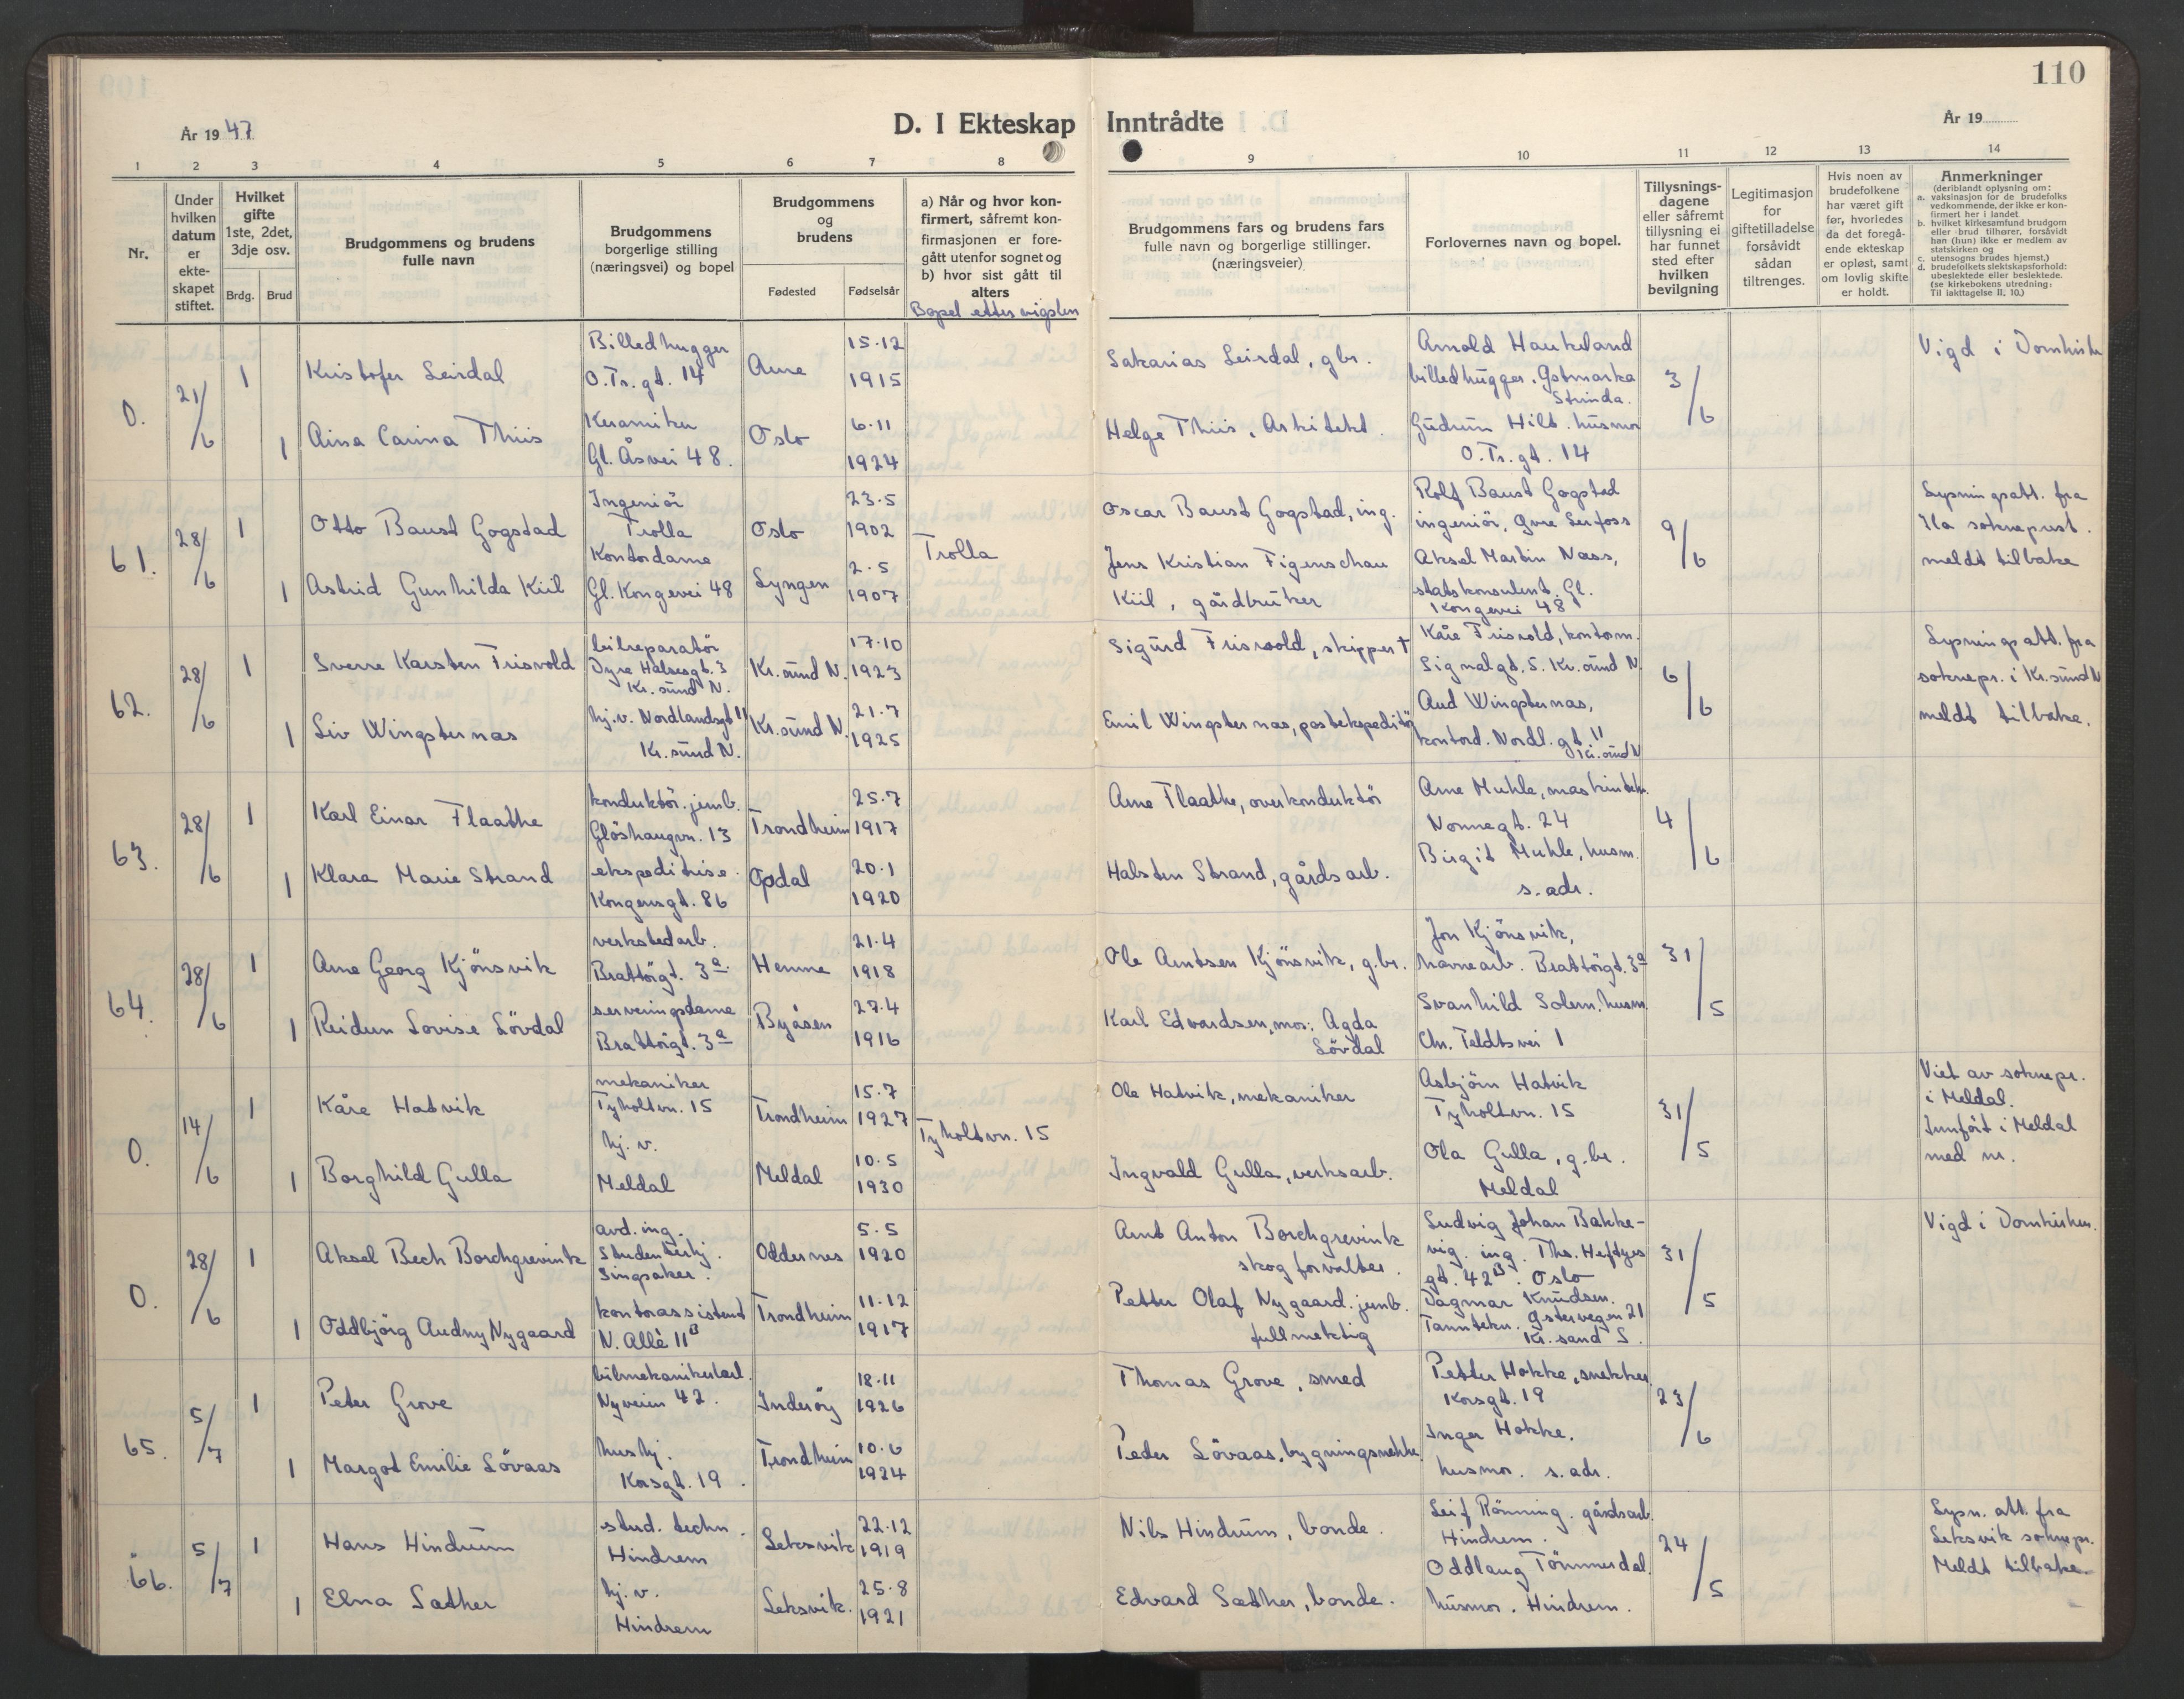 110
År 1947
D. I Ekteskap Inntrådte
År 19
1 2 3 4 5 6 7 8 9 10 11 12 13 14
Nr.
Under hvilken datum er ekte-skapet stiftet.
Hvilket gifte 1ste, 2det, 3dje osv.
Brdg. Brud
Brudgommens og brudens fulle navn
Brudgommens borgerlige stilling (næringsvei) og bopel
Brudgommens og brudens
Fødested Fødselsår
a) Når og hvor kon-firmert, såfremt kon-firmasjonen er fore-gått utenfor sognet og b) hvor sist gått til alters
Bopel etter vigslen
Brudgommens fars og brudens fars fulle navn og borgerlige stillinger. (næringsveier)
Forlovernes navn og bopel.
Tillysnings-dagene eller såfremt tillysning ei har funnet sted efter hvilken bevilgning
Legitimasjon for giftetilladelse forsåvidt sådan tiltrenges.
Hvis noen av brudefolkene har været gift før, hvorledes da det foregå-ende ekteskap er opløst, samt om lovlig skifte er holdt.
Anmerkninger
(deriblandt oplysning om:
a. vaksinasjon for de brudefolks vedkommende, der ikke er kon-firmert her i landet
b. hvilket kirkesamfund brudgom eller brud tilhører, forsåvidt han (hun) ikke er medlem av statskirken og
c. utensogns brudes hjemst.)
d. brudefolkets slektskapsforhold: ubeslektede eller beslektede.
(se kirkebokens utredning: Til iakttagelse II, 10.)
0. 21/6 1 Kristofer Leirdal
Billedhugger
O.Tr.gt. 14
Arne
15.12
1915
Sakarias Leirdal, gbr.
Arnold Haukeland
billedhugger. Østmarka
Strinda.
3/6
Vigd i Domkirken
1 Aina Carina Thiis
Keramiker
Gl. Åsvei 48.
Oslo
6.11
1924
Helge Thiis, Arkitekt.
Gudrun Hilt. husmor
O.Tr.gt. 14
61. 28/6 1 Otto Baust Gogstad
Ingeniör
Trolla
Oslo
23.5
1902
Trolla
Oscar Baust Gogstad, ing.
Rolf Baust Gogstad
ingeniör, Øvre Leirfoss
9/6
Lysningsatt. fra
Ila sokneprest.
meldt tilbake
1 Astrid Gunhilda Kiil
Kontordame
Gl. Kongevei 48
Lyngen
2.5
1907
Jens Kristian Figenschau
Kiil, gårdbruker
Aksel Martin Næss,
statskonsulent. Gl.
Kongevei 48
62. 28/6 1 Sverre Karsten Frisvold
bilreparatör
Dyre Halsesgt. 3
Kr.sund N.
Kr.sund N.
17.10
1923
Sigurd Frisvold, skipper †
Kåre Frisvold, kontorm.
Signalgt. 5. Kr.sund N.
6/6
Lysningsatt. fra
soknepr. i Kr.sund N
meldt tilbake.
1 Liv Wingsternas
hj.v. Nordlandsgt 11
Kr.sund N.
Kr.sund N.
21.7
1925
Emil Wingsternas, postekspeditör
Aud Wingsternas,
kontord. Nordl.gt 11
Kr.sund N
63. 28/6 1 Karl Einar Flaathe
konduktör. jernb.
Glöshaugvn. 13
Trondheim
25.7
1917
Arne Flaathe, overkonduktör
Arne Muhle, maskintekn.
Nonnegt. 24
4/6
1 Klara Marie Strand
ekspeditrise.
Kongensgt. 86
Opdal
20.1
1920
Halsten Strand, gårdsarb.
Birgit Muhle, husm.
s. adr.
64. 28/6 1 Arne Georg Kjönsvik
verkstedarb.
Brattörgt. 3a
Hemne
21.4
1918
Ole Arntsen Kjönsvik, g.br.
Jon Kjönsvik,
havnearb. Brattörgt. 3a
31/5
1 Reidun Lovise Lövdal
serveringsdame
Brattörgt. 3a
Byåsen
27.4
1916
Karl Edvardsen, mor: Agda
Lövdal
Svanhild Solem, husm.
Chr. Feldtsvei 1
0. 14/6 1 Kåre Hatvik
mekaniker
Tyholtvn. 15
Trondheim
15.7
1927
Tyholtvn. 15
Ole Hatvik, mekaniker
Asbjörn Hatvik
Tyholtvn. 15
31/5
Viet av soknepr.
i Meldal.
Innfört i Meldal
med nr.
1 Borghild Gulla
hj.v.
Meldal
Meldal
10.5
1930
Ingvald Gulla, verksarb.
Ola Gulla, g.br.
Meldal
0. 28/6 1 Aksel Bech Borchgrevink
avd.ing.
Studenterhj.
Singsaker.
Oddernes
5.5
1920
Arnt Anton Borchgrevink
skogforvalter.
Ludvig Johan Bakke-
vig. ing. Ths. Heftyes
gt. 42B. Oslo
31/5
Vigd i Domkirken.
1 Oddbjörg Audny Nygaard
kontorassistent
N. Allé 11B
Trondheim
11.12
1917
Petter Olaf Nygaard. jernb.
fullmektig
Dagmar Knudsen.
Tanntekn. Østervegen 21
Kr.sand S.
65. 5/7 1 Peter Grove
bilmekanikerlærl.
Nyveien 42.
Inderöy
18.11
1926
Thomas Grove, smed
Petter Hokke, snekker
Korsgt. 19
23/6
1 Margot Emilie Lövaas
hushj.
Korsgt. 19.
Trondheim
10.6
1924
Peder Lövaas, bygningsnekker
Inger Hokke.
husmor. s. adr.
66. 5/7 1 Hans Hindrum
stud. techn.
Hindrem
Leksvik
22.12
1919
Nils Hindrum, bonde.
Leif Rönning. gårdsarb.
Hindrem.
24/5
Lysn. att. fra
Leksvik soknepr.
Meldt tilbake.
1 Elna Sæther
hj.v.
Hindrem
Leksvik.
25.8
1921
Edvard Sæther, bonde.
Oddlaug Tömmerdal.
husmor. Hindrem.